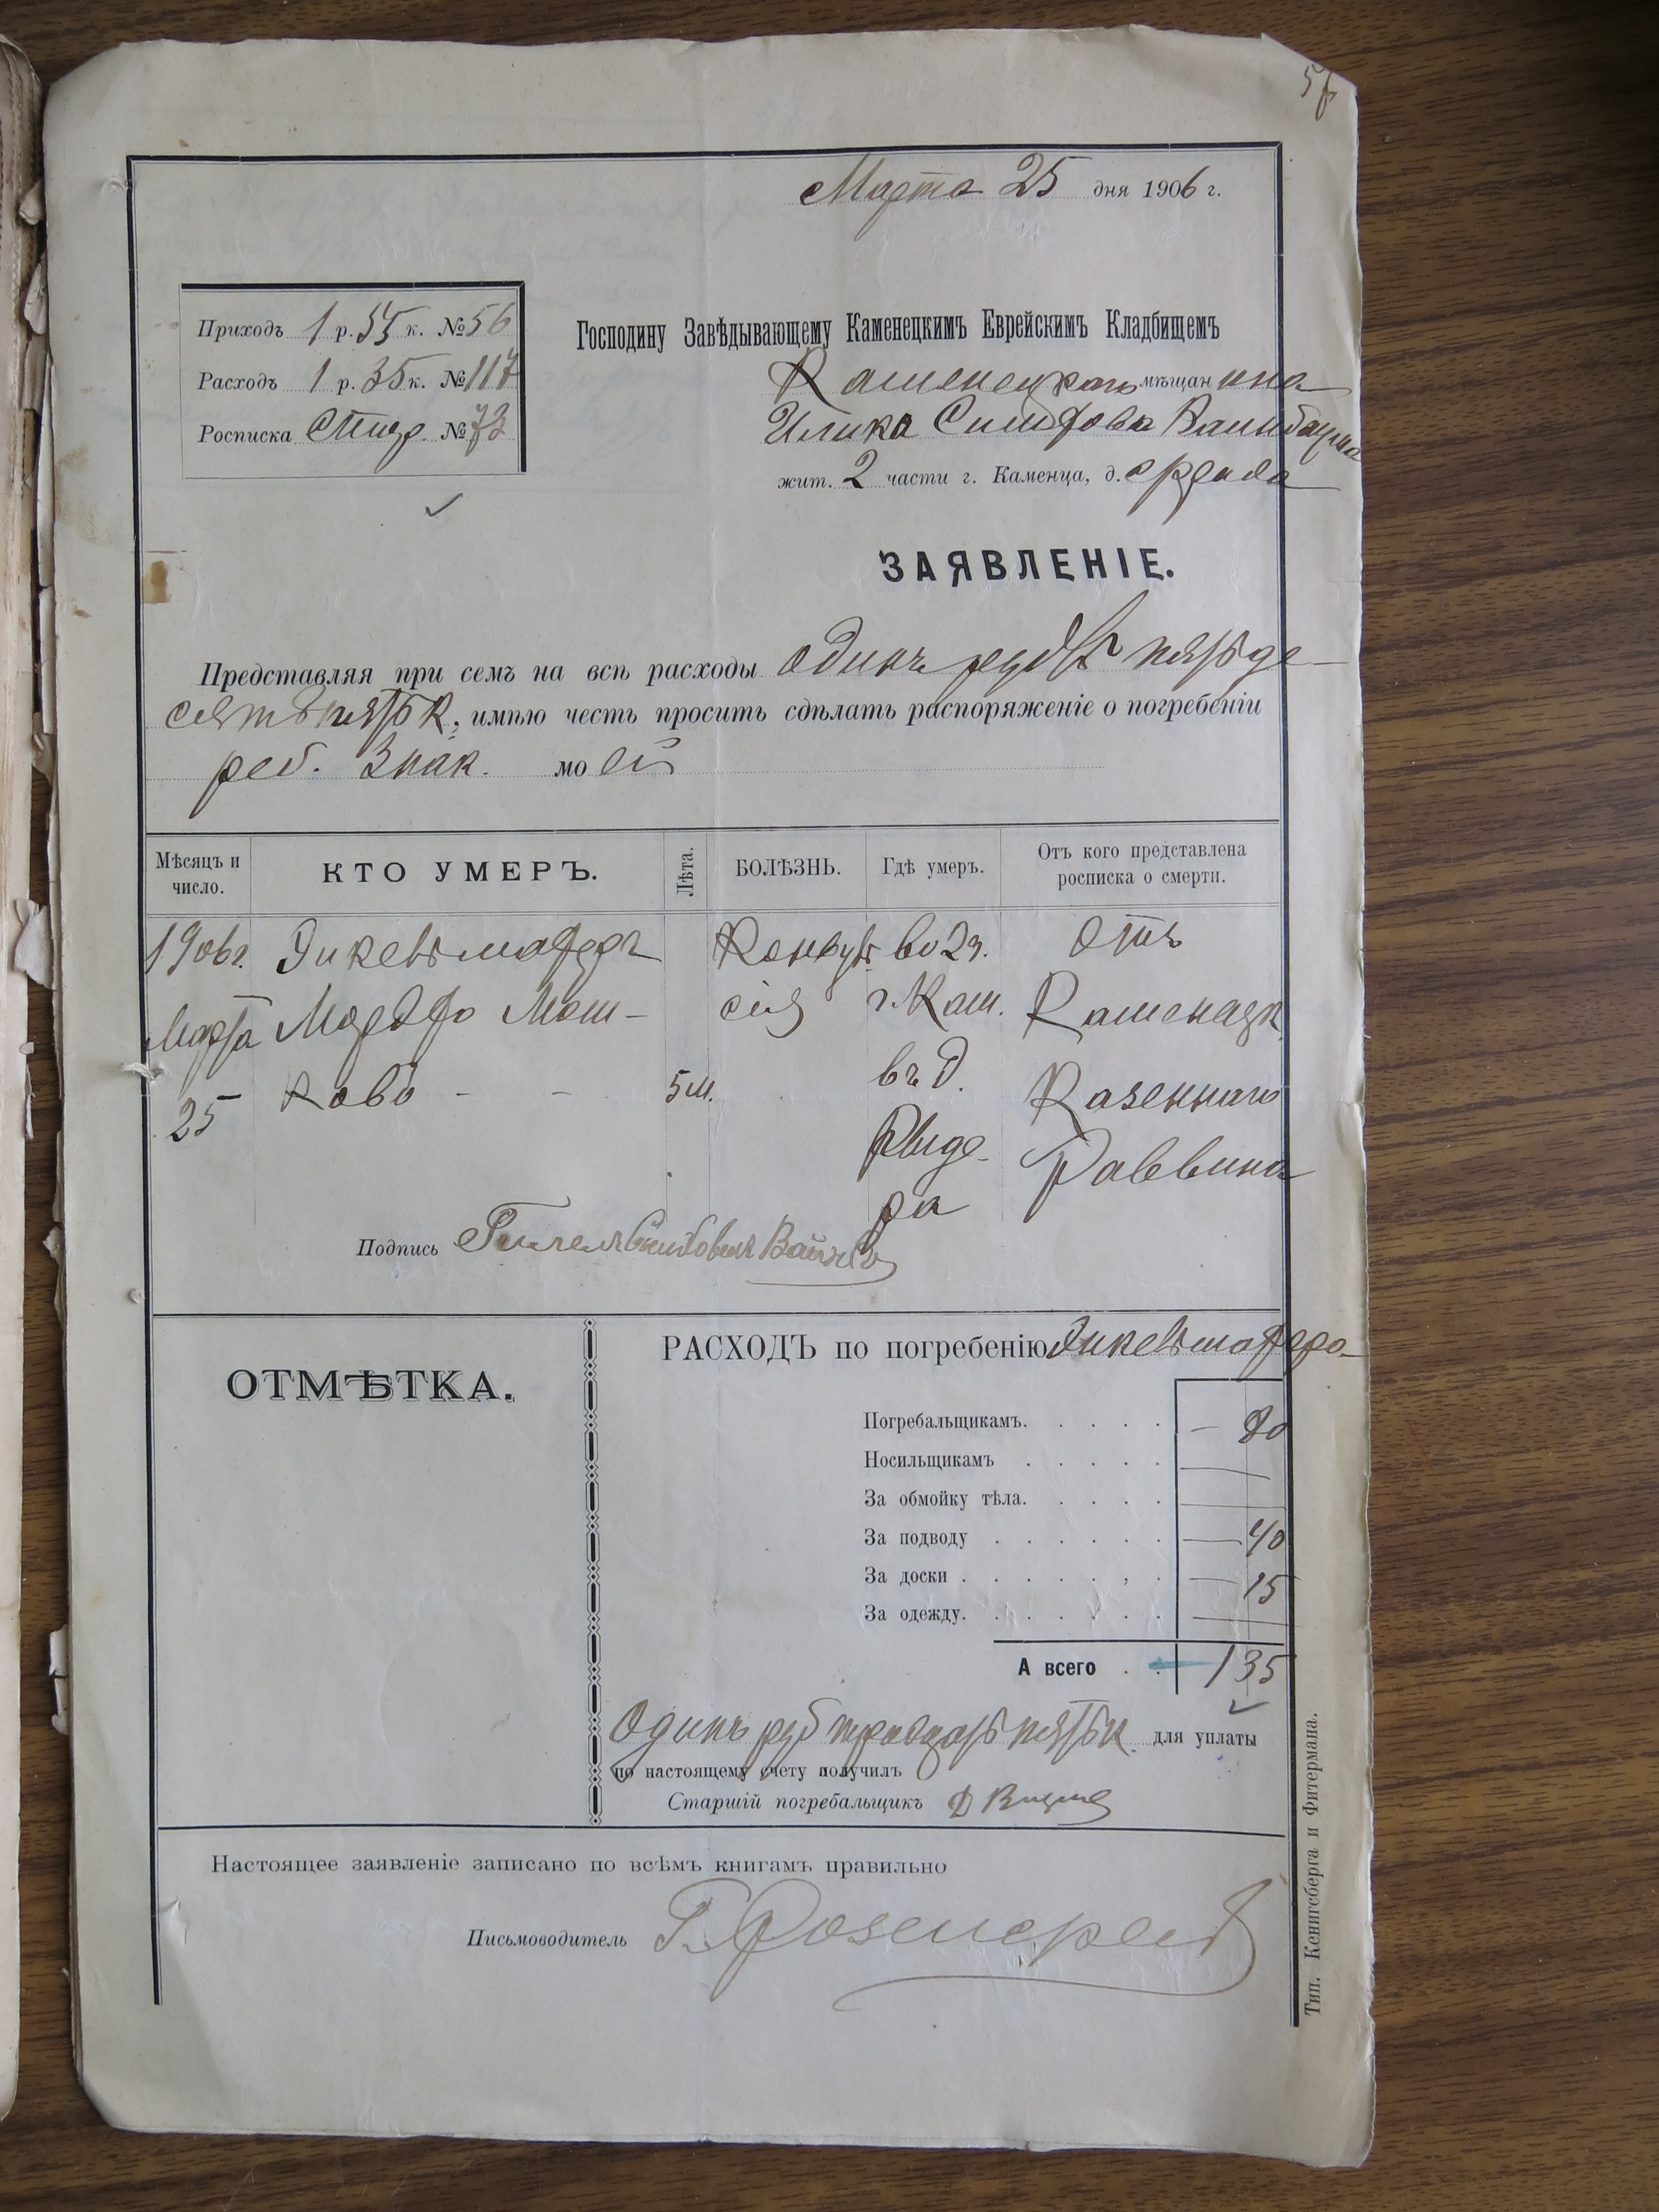 57
Марта 25 дня 1906 г.
Приходъ 1 р. 55 к. № 56
Расходъ 1 р. 35 к. № 117
Росписка № 73
Господину Завѣдывающему Каменецкимъ Еврейскимъ Кладбищемъ
мѣщанина
жит. 2 части г. Каменца, д.
ЗАЯВЛЕНІЕ.
Представляя при семъ на всѣ расходы одинъ рубль пятьде-
сятъ пять к., имѣю честь просить сдѣлать распоряженіе о погребеніи
реб. Знак. моей
Мѣсяцъ и число.
КТО УМЕРЪ.
Лѣта.
БОЛѢЗНЬ.
Гдѣ умеръ.
Отъ кого представлена росписка о смерти.
1906 г.
Марта
25
Финкельшафферъ
Мош-
ковъ - -
5 м.
Конвуль
сія
во 2 ч.
г. Кам.
въ д.
Рыде-
ра
Отъ
Каменецк.
Казеннаго
Раввина
Подпись
ОТМѢТКА.
РАСХОДЪ по погребенію
Погребальщикамъ. — 80
Носильщикамъ —
За обмойку тѣла. —
За подводу — 40
За доски — 15
За одежду. —
А всего 1 35
Одинъ руб тридцать пять к. для уплаты
по настоящему счету получилъ
Старшій погребальщикъ
Настоящее заявленіе записано по всѣмъ книгамъ правильно
Письмоводитель
Тип. Кенигсберга и Фитермана.